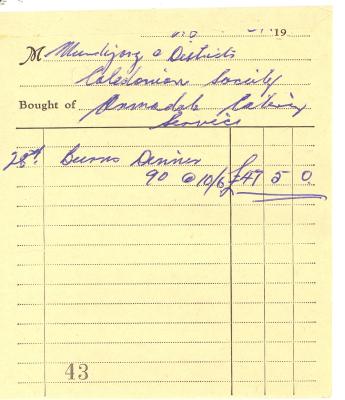 19
M Mundijong & Districts
Caledonian Society
Bought of Armadale Catering
Service
28th Burns Dinner
90 @ 10/6 £47 5 0
43